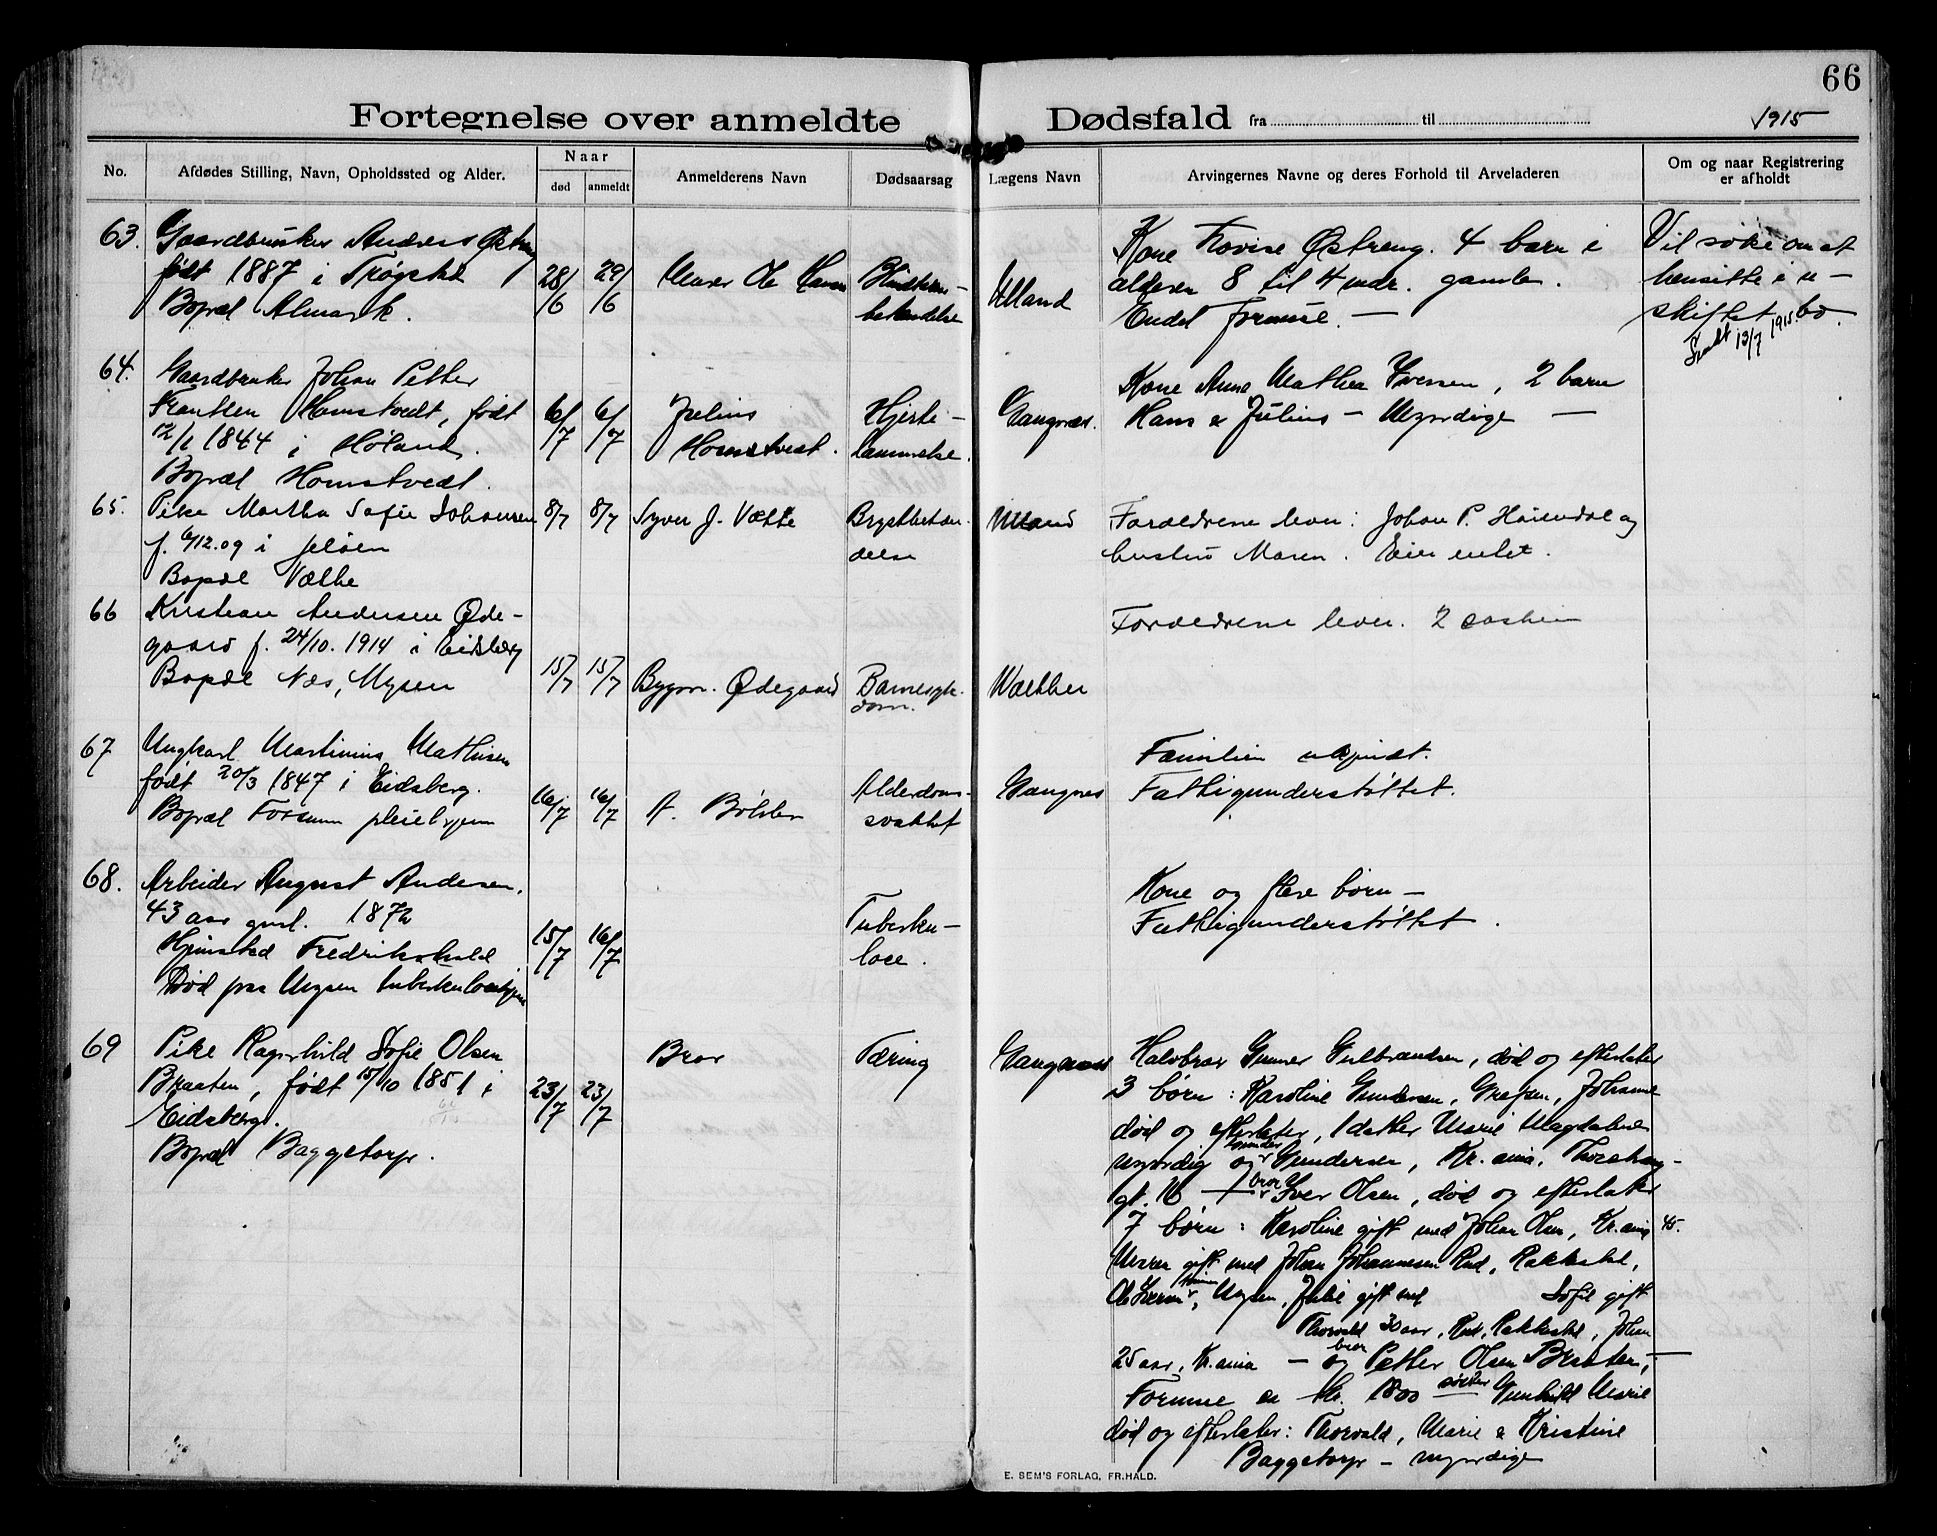 66
Fortegnelse over anmeldte Dødsfald fra til 1915
No. Afdødes Stilling, Navn, Opholdssted og Alder. Naar død anmeldt Anmelderens Navn Dødsaarsag Lægens Navn Arvingernes Navne og deres Forhold til Arveladeren Om og naar Registrering er afholdt
63. Gaardbruker Andreas Østreng
født 1887 i Trøgstad
Bopæl Almark.
28/6 29/6
Blindtarm-
betændelse
Ulland
Kone Lovise Østreng. 4 barn i
alderen 8 til 4 mdr. gamle.
Endel formue. —
Vil søke om at
hensitte i u-
skiftet bo.
Sendt 13/7 1915.
64. Gaardbruker Johan Petter
Frantsen Homstvedt, født
12/1 1844 i Høland.
Bopæl Homstvedt.
6/7 6/7
Julius
Homstvedt.
Hjerte-
lammelse.
Gangnæs.
Kone Anna Mathea Iversen, 2 barn
Hans & Julius — Myndige —
65. Pike Martha Sofie Johansen
f. 6/12.09 i Jeløen
Bopæl Væthe
8/7 8/7
Syver J. Vætte
Brystbetæn-
delse
Ulland
Forældrene lever: Johan P. Haisendal og
hustru Maren. Eier intet.
66 Kristian Andersen Øde-
gaard f. 24/10. 1914 i Eidsberg
Bopæl Næs, Mysen
15/7 15/7
Bygm. Ødegaard
Barnesyk-
dom.
Walther
Forældrene lever. 2 søsken
67 Ungkarl Martinius Mathisen
født 20/3 1847 i Eidsberg.
Bopæl Fossum pleiehjem
16/7 16/7
A. Bølsler
Alderdoms-
svakhet
Gangnes
Familien ukjendt.
Fattigunderstøttet.
68. Arbeider August Andersen,
43 aar gml. 1872
Hjemsted Fredrikshald
Død paa Mysen tuberkulosehjem
15/7 16/7
Tuberku-
lose.
Kone og flere børn —
Fattigunderstøttet.
69 Pike Ragnhild Sofie Olsen
Braaten, født 15/10 1851 i
Eidsberg.
Bopæl Baggetorp.
23/7 23/7
Bror
Tæring
Gangnæs
Halvbror Gunner Gulbrandsen, død og efterlater
3 børn: Karoline Gundersen, Grefsen, Johanne
død og efterlater, 1 datter Marie Magdalene
myndig og Gunder Gundersen, Kr.ania,
gt. 16 — bror Iver Olsen, død og efterlater
7 børn: Karoline gift med Johan Olsen, Kr.ania 45.
Maren gift med Johan Johannesen Rud, Rakkestad,
Ole Iversen, Mysen, Julie gift med Sofie gift
Thorvald 30 aar, Rud, Rakkestad, Johan
25 aar, Kr.ania — og bror Petter Olsen Braaten, —
Formue ca kr. 1800 søster Gunhild Marie
død og efterlater: Thorvald, Marie & Kristine
Baggetorp — myndige
E. SEM'S FORLAG, FR.HALD.